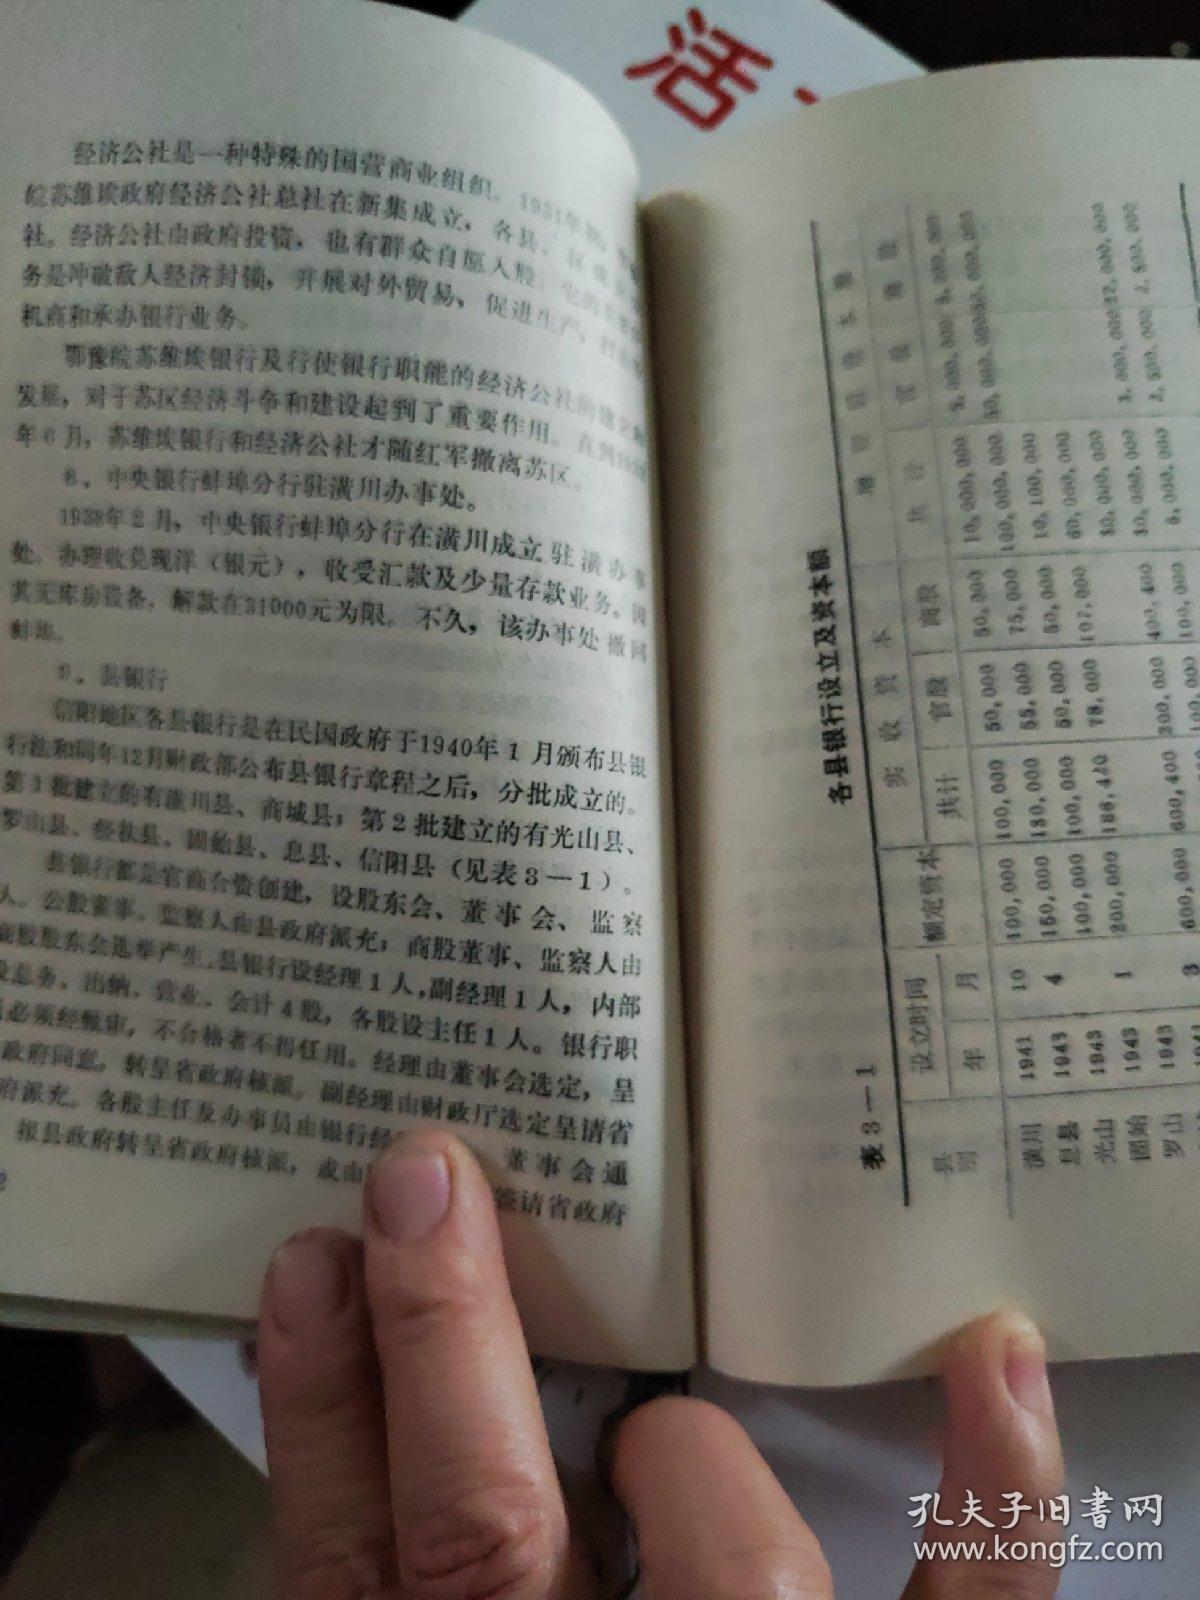 活
经济公社是一种特殊的国营商业组织。1931年初，
皖苏维埃政府经济公社总社在新集成立，各县、区
社。经济公社由政府投资，也有群众自愿入股。它的主要
务是冲破敌人经济封锁，开展对外贸易，促进生产，
机商和承办银行业务。
鄂豫皖苏维埃银行及行使银行职能的经济公社的建立和
发展，对于苏区经济斗争和建设起到了重要作用。直到
年6月，苏维埃银行和经济公社才随红军撤离苏区。
8、中央银行蚌埠分行驻潢川办事处。
1938年2月，中央银行蚌埠分行在潢川成立驻潢办事
处。办理收兑现洋（银元），收受汇款及少量存款业务。因
其无库房设备，解款在31000元为限。不久，该办事处撤回
蚌埠。
9、县银行
信阳地区各县银行是在民国政府于1940年1月颁布县银
行法和同年12月财政部公布县银行章程之后，分批成立的。
第1批建立的有潢川县、商城县；第2批建立的有光山县、
罗山县、经扶县、固始县、息县、信阳县（见表3－1）。
县银行都是官商合资创建，设股东会、董事会、监察
人。公股董事、监察人由县政府派充；商股董事、监察人由
商股股东会选举产生。县银行设经理1人，副经理1人，内部
设总务、出纳、营业、会计4股，各股设主任1人。银行职
员必须经甄审，不合格者不得任用。经理由董事会选定，呈
政府同意，转呈省政府核派。副经理由财政厅选定呈请省
府派充。各股主任及办事员由银行经 董事会通
报县政府转呈省政府核派，或由 签请省政府
2
表3－1 各县银行设立及资本额
县别 设立时间 额定资本 实收资本 增
年 月 共计 官股 商股 共计 官股 商股
潢川 1941 10 100,000 100,000 50,000 50,000 10,000,000 5,000,000 5,000,000
息县 1943 4 150,000 130,000 55,000 75,000 100,000,000 50,000,000 50,000,000
光山 1943 100,000 100,000 50,000 50,000 10,100,000
固始 1943 1 200,000 186,440 78,000 107,000 60,000,000
30,000,000
罗山 1943 3 600,000 600,400 200,000 400,400 30,000,000 3,000,000 27,000,000
100,000 5,000,000 2,500,000 2,500,000
孔夫子旧书网
www.kongfz.com